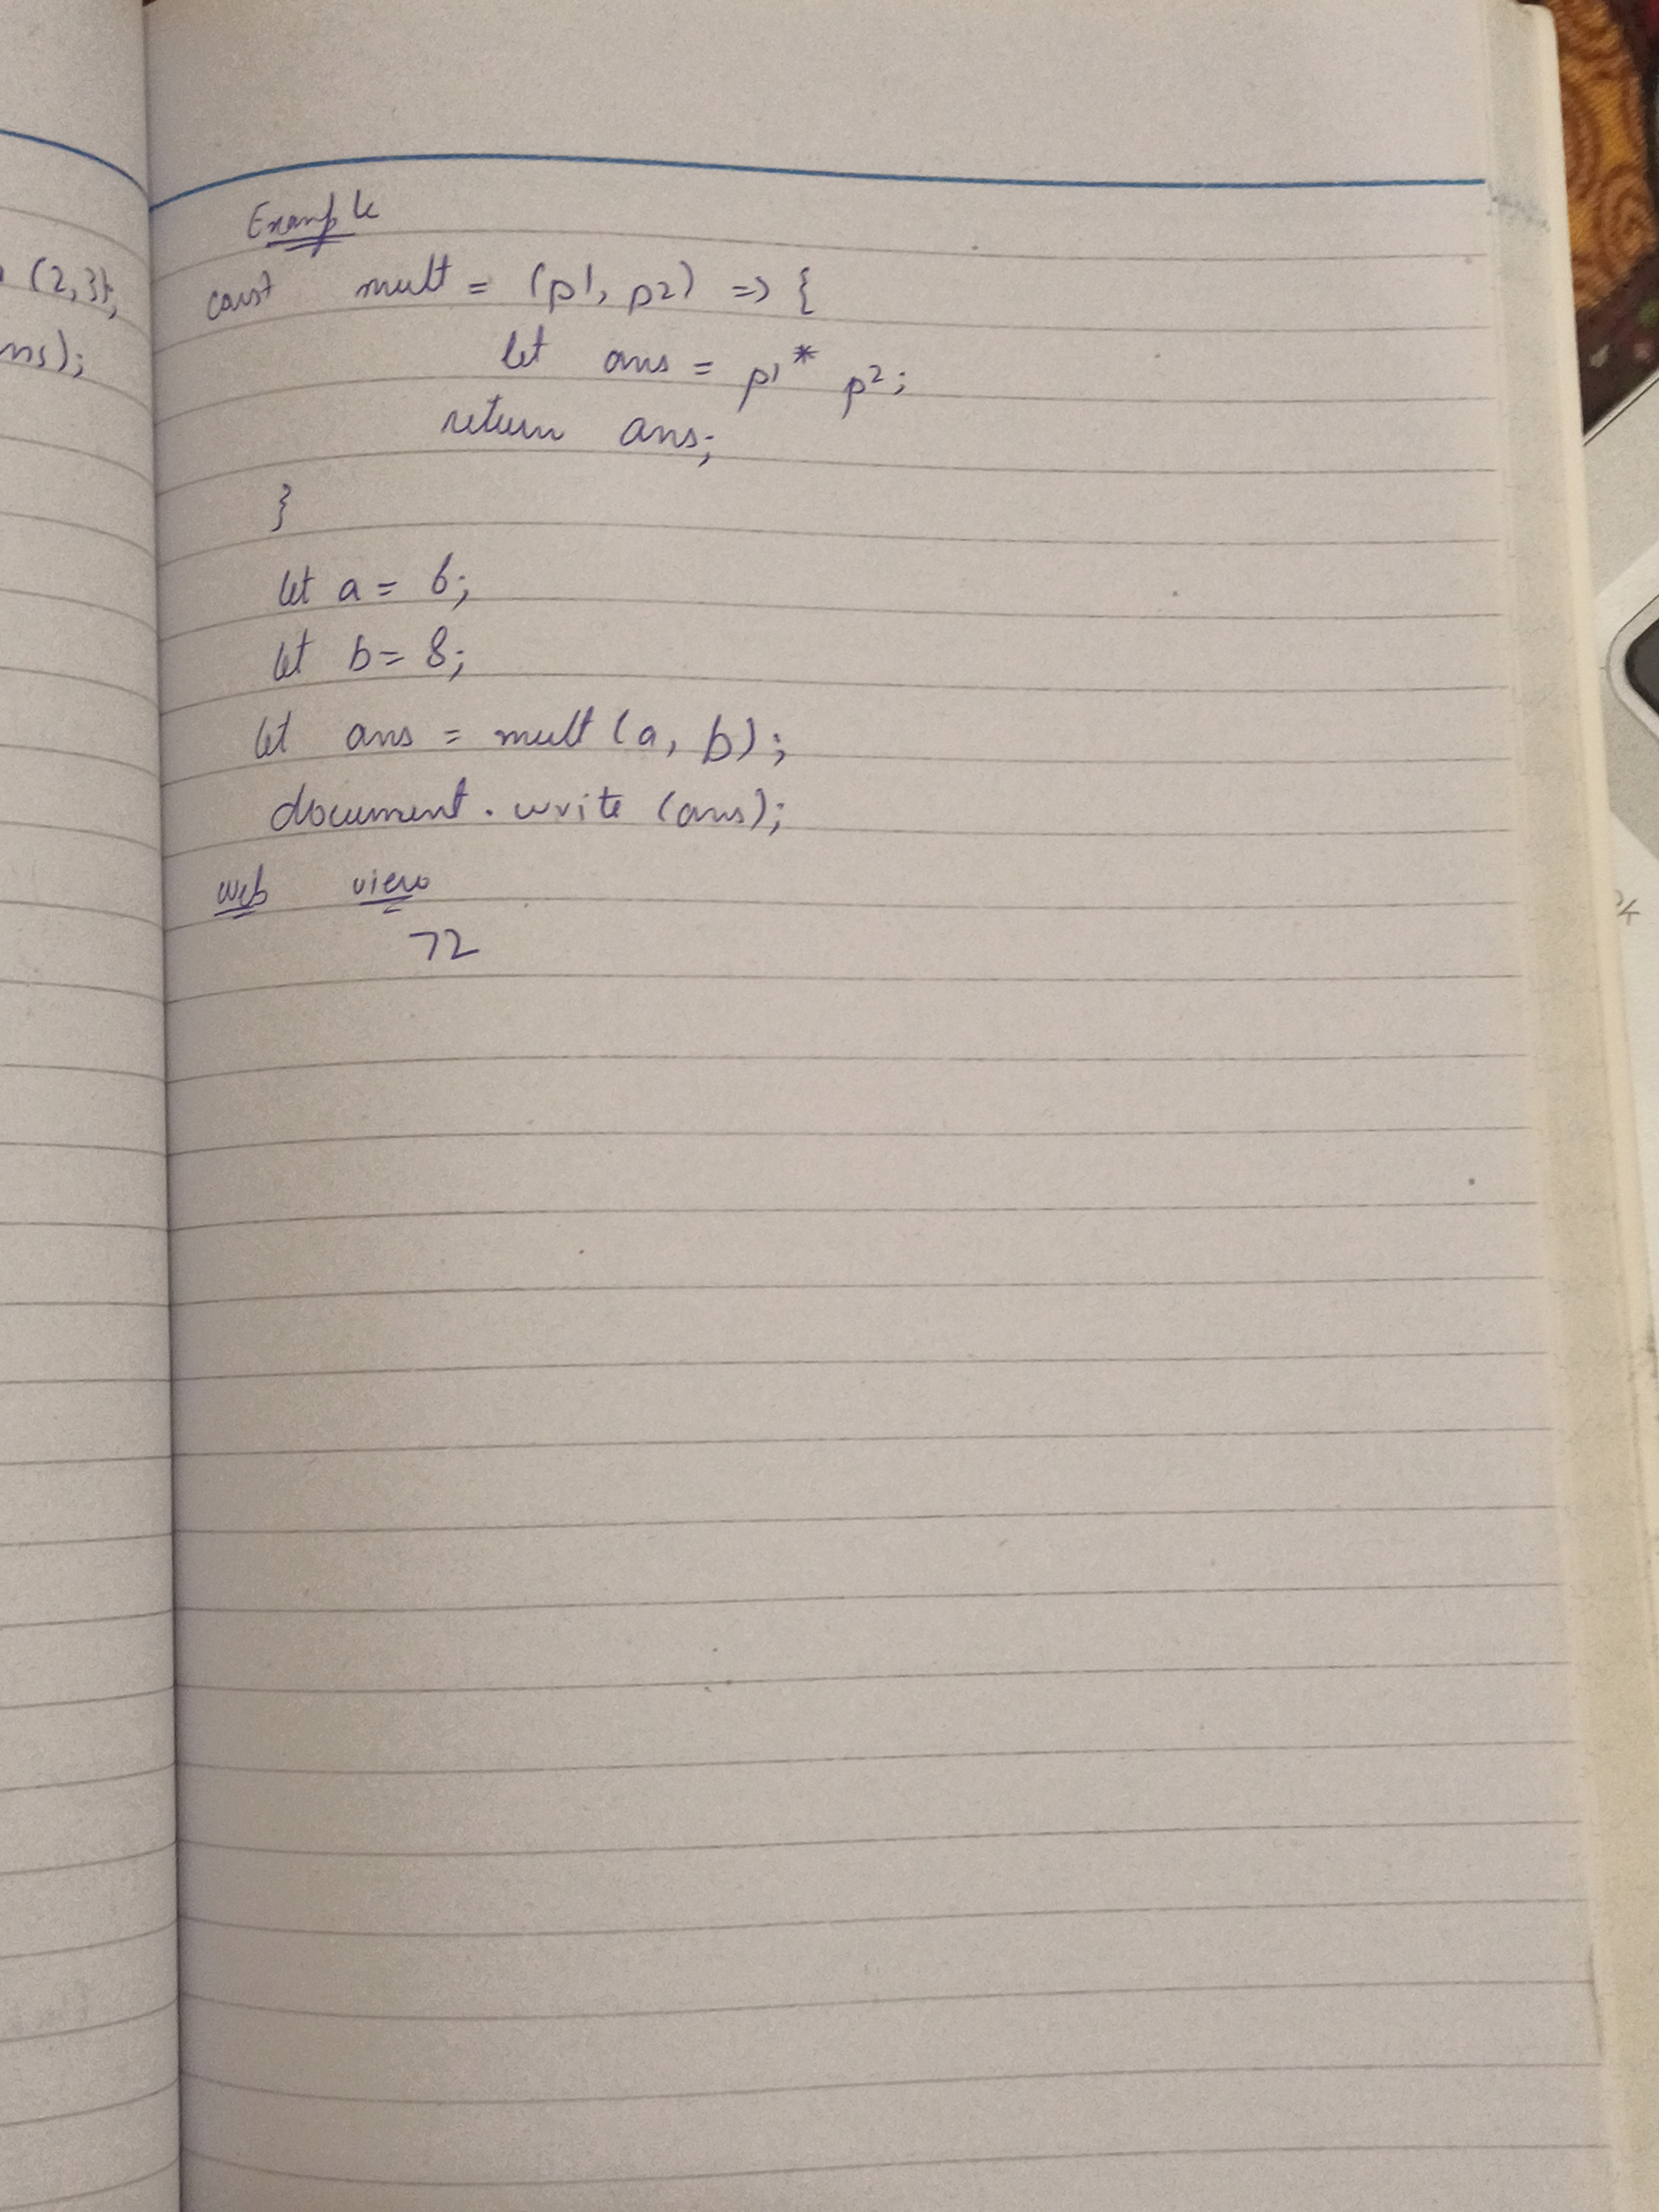 (2,3);
ns);
Example
const mult = (p1, p2) => {
let ans = p1 * p2;
return ans;
}
let a = 6;
let b = 8;
let ans = mult (a, b);
document. write (ans);
web view
72